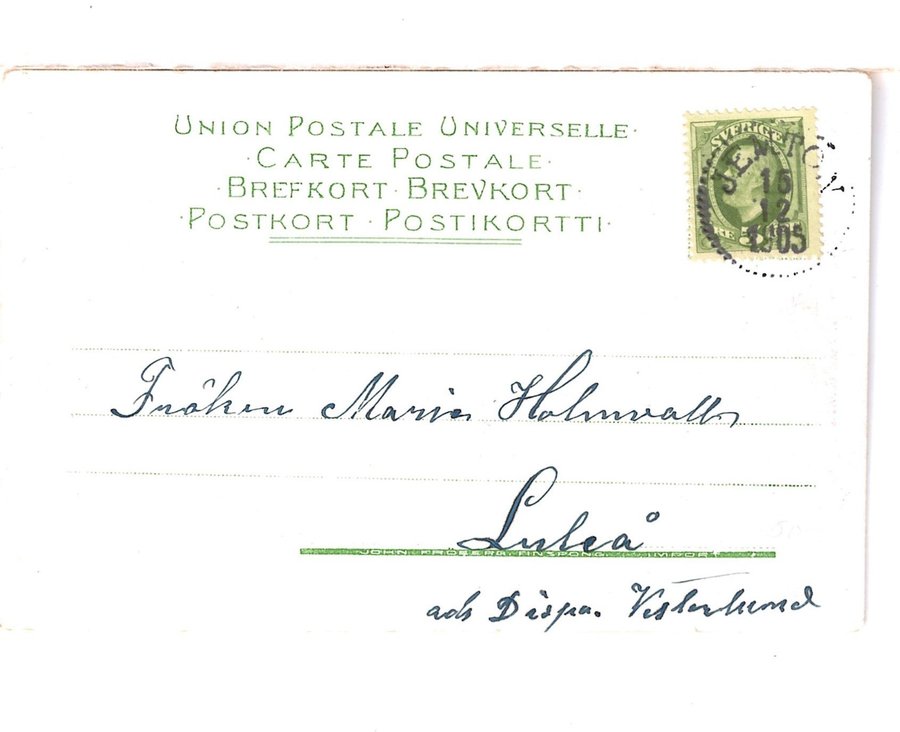 UNION POSTALE UNIVERSELLE·
·CARTE POSTALE·
·BREFKORT·BREVKORT·
·POSTKORT·POSTIKORTTI·
SVERIGE
15
12
1905
Fröken Maria Holmvall
Luleå
JOHN FRÖBERG. FINSPONG. IMPORT
adr Dispa. Vesterlund